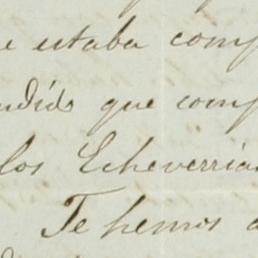 e estaba comp
ndido que comp
los Echeverria
Te hemos a